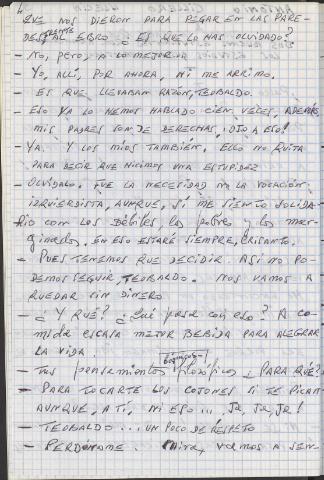 QUE NOS DIERON PARA PEGAR EN LAS PARE-
DES FRENTE AL EBRO. ¿O ES QUE LO HAS OLVIDADO?
— NO, PERO, A LO MEJOR
— YO, ALLÍ, POR AHORA, NI ME ARRIMO.
— ES QUE LLEVABAN RAZÓN, TEOBALDO.
— ESO YA LO HEMOS HABLADO CIEN VECES, ADEMÁS
MIS PADRES SON DE DERECHAS, ¡OJO A ESO!
— YA. Y LOS MIOS TAMBIÉN. ELLO NO QUITA
PARA DECIR QUE HICIMOS UNA ESTUPIDEZ
— OLVÍDALO. FUE LA NECESIDAD NO LA VOCACIÓN
IZQUIERDISTA, AUNQUE, SÍ ME SIENTO SOLIDA-
RIO CON LOS Débiles, los pobres y los mar-
ginados, EN ESO ESTARÉ SIEMPRE, CRISANTO.
— PUES TENEMOS QUE DECIDIR. ASÍ NO PO-
DEMOS SEGUIR, TEOBALDO. NOS VAMOS A
QUEDAR SIN DINERO
— ¿Y QUÉ? ¿Qué pasa con eso? A CO-
MIDA ESCASA MEJOR BEBIDA PARA ALEGRAR
LA VIDA.
— Tus pensamientos filosóficos ¿PARA QUÉ?
— PARA TOCARTE LOS COJONES SI TE PICAN
AUNQUE, A TÍ, NI ESO... Ja, Ja, Ja!
— TEOBALDO... UN POCO DE RESPETO
— PERDÓNAME. Mira, vamos A SEN-